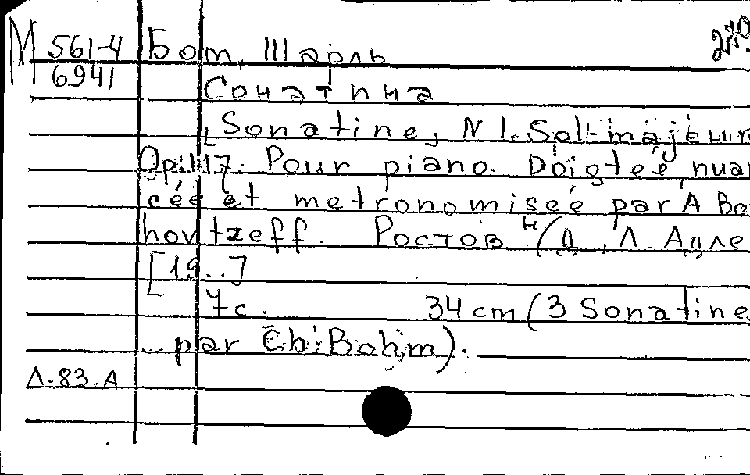 М 561-4 Бом, Шарль
6941
Сонатина
[Sonatine, N 1. Sol-majeur
Op. 117. Pour piano. Doigtée, nuan
cée et metronomisée par A Be
hovtzeff. Ростов н/Д, Л. Адле
[19..]
7 с. 34 cm (3 Sonatine
par Ch. Bohm).
Л.83.А